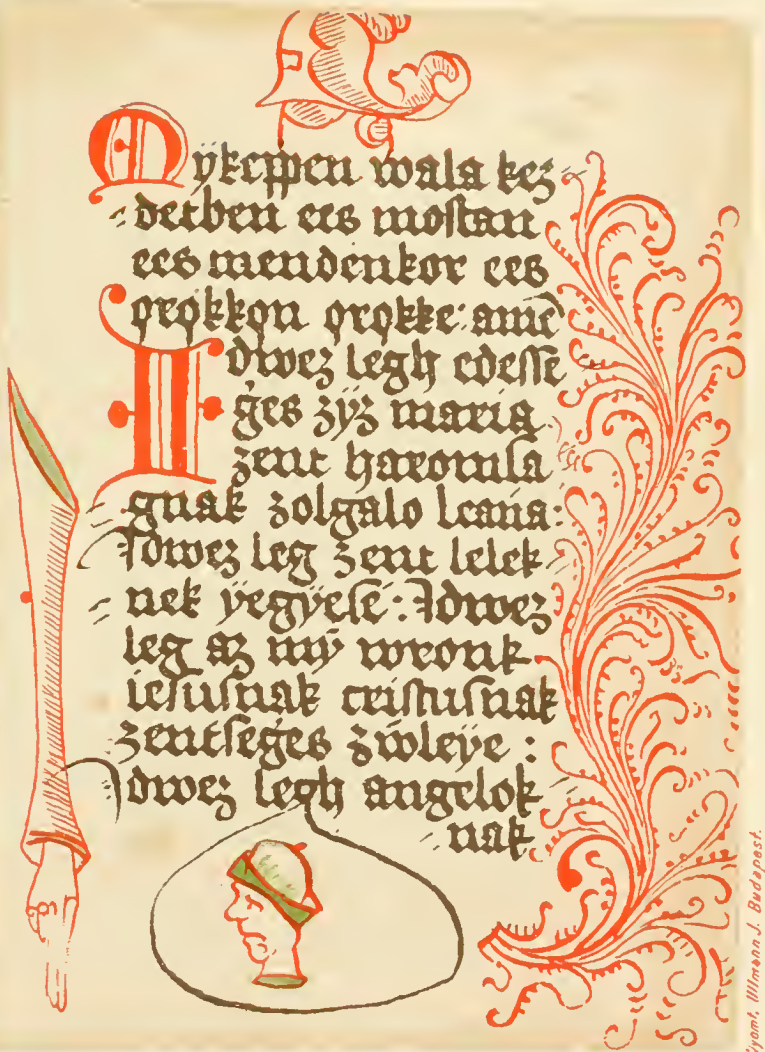 Mÿkeppen wala kez
detben ees mostan
ees mendenkor ees
ọrọkkọn ọrọkke: amē
Idwez legh edesse
ges zÿz maria
zent haromsa
gnak zolgalo leania:
Idwez leg zent lelek
nek ÿegÿese: Idwez
leg az mÿ wronk
iesusnak cristusnak
zentseges zwleÿe:
Idwez legh angelok
nak
Nyomt. Ullmann J. Budapest.